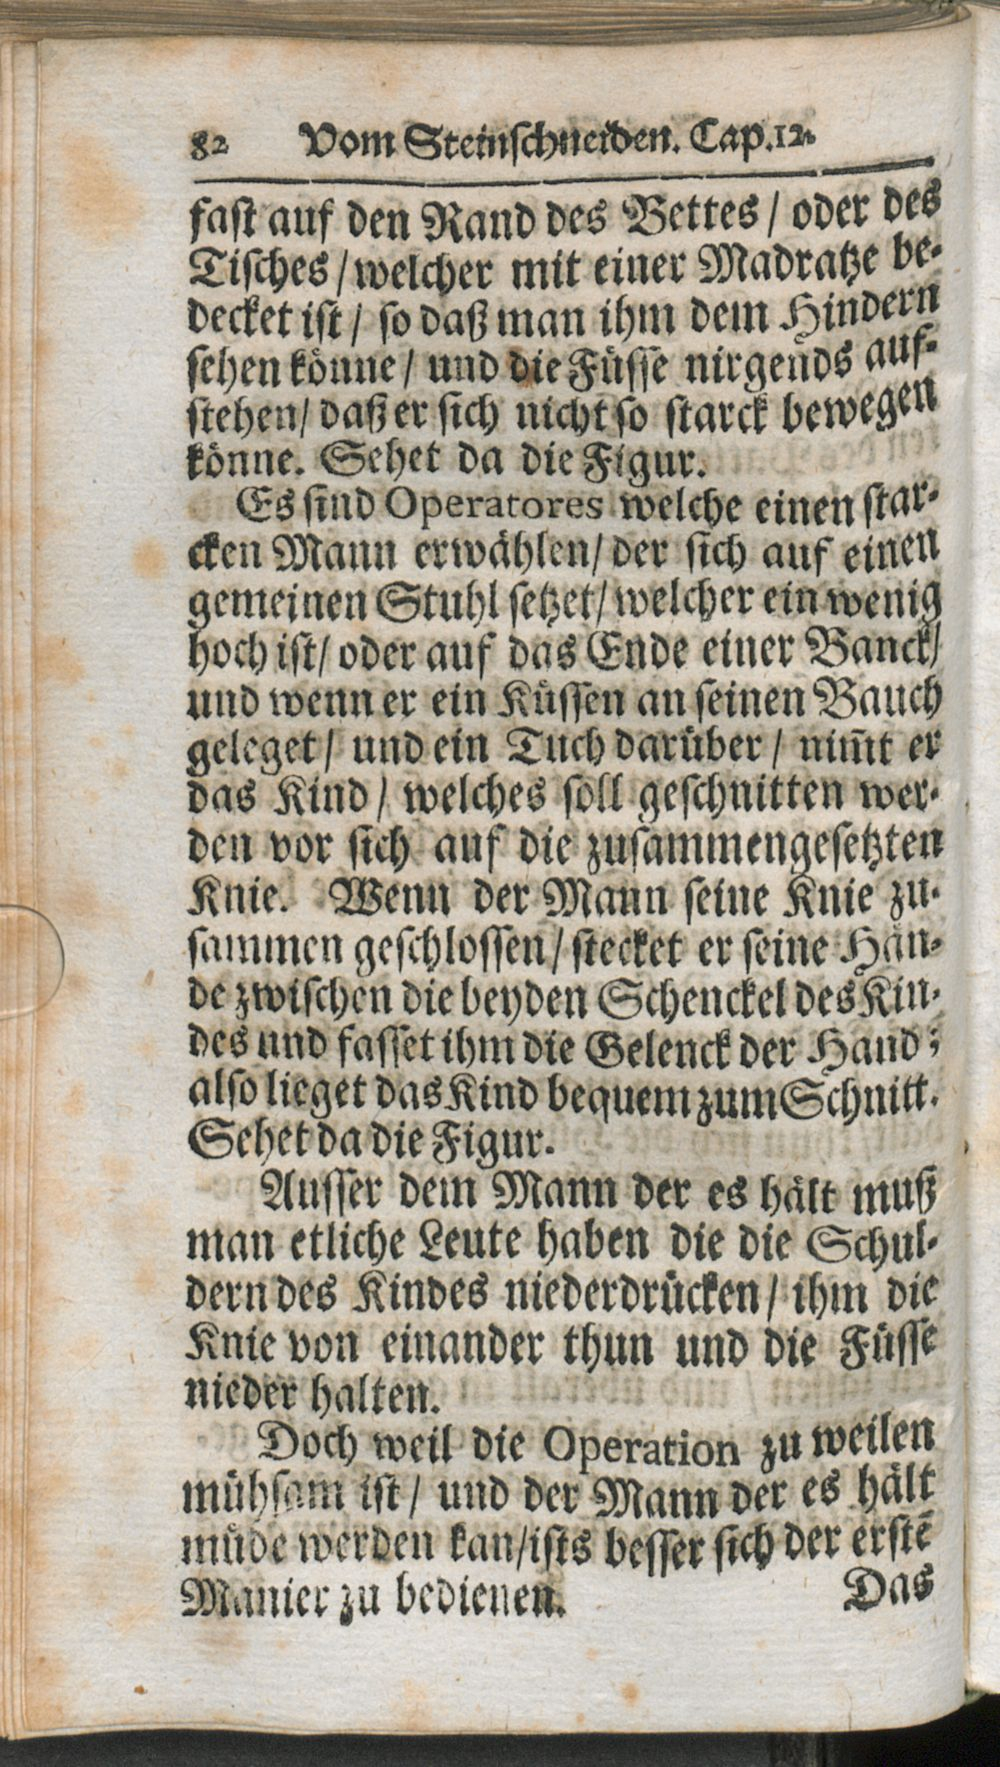 82 Vom Steinſchneiden. Cap.12.
faſt auf den Rand des Bettes / oder des
Tiſches / welcher mit einer Madratze be-
decket iſt / ſo daß man ihm dem Hindern
ſehen könne / und die Füſſe nirgends auf-
ſtehen / daß er ſich nicht ſo ſtarck bewegen
könne. Sehet da die Figur.
Es ſind Operatores welche einen ſtar-
cken Mann erwählen / der ſich auf einen
gemeinen Stuhl ſetzet / welcher ein wenig
hoch iſt / oder auf das Ende einer Banck /
und wenn er ein Küſſen an ſeinen Bauch
geleget / und ein Tuch darüber / nim̃t er
das Kind / welches ſoll geſchnitten wer-
den vor ſich auf die zuſammengeſetzten
Knie. Wenn der Mann ſeine Knie zu-
ſammen geſchloſſen / ſtecket er ſeine Hän-
de zwiſchen die beyden Schenckel des Kin-
des und faſſet ihm die Gelenck der Hand;
alſo lieget das Kind bequem zum Schnitt.
Sehet da die Figur.
Auſſer dem Mann der es hält muß
man etliche Leute haben die die Schul-
dern des Kindes niederdrücken / ihm die
Knie von einander thun und die Füſſe
nieder halten.
Doch weil die Operation zu weilen
mühſam iſt / und der Mann der es hält
müde werden kan / iſts beſſer ſich der erſtẽ
Manier zu bedienen.
Das